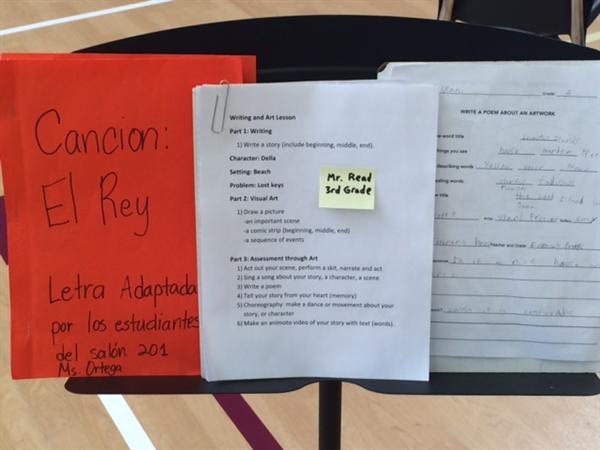 Cancion:
El Rey
Letra Adaptada
por los estudiantes
del salón 201
Ms. Ortega
Writing and Art Lesson
Part 1: Writing
1) Write a story (include beginning, middle, end).
Character: Della
Setting: Beach
Problem: Lost keys
Part 2: Visual Art
1) Draw a picture
-an important scene
-a comic strip (beginning, middle, end)
-a sequence of events
Part 3: Assessment through Art
1) Act out your scene, perform a skit, narrate and act
2) Sing a song about your story, a character, a scene
3) Write a poem
4) Tell your story from your heart (memory)
5) Choreography: make a dance or movement about your
story, or character
6) Make an animoto video of your story with text (words).
Mr. Read
3rd Grade
Grade:
WRITE A POEM ABOUT AN ARTWORK
word title
things you see
describing words
title
Teacher and Grade: